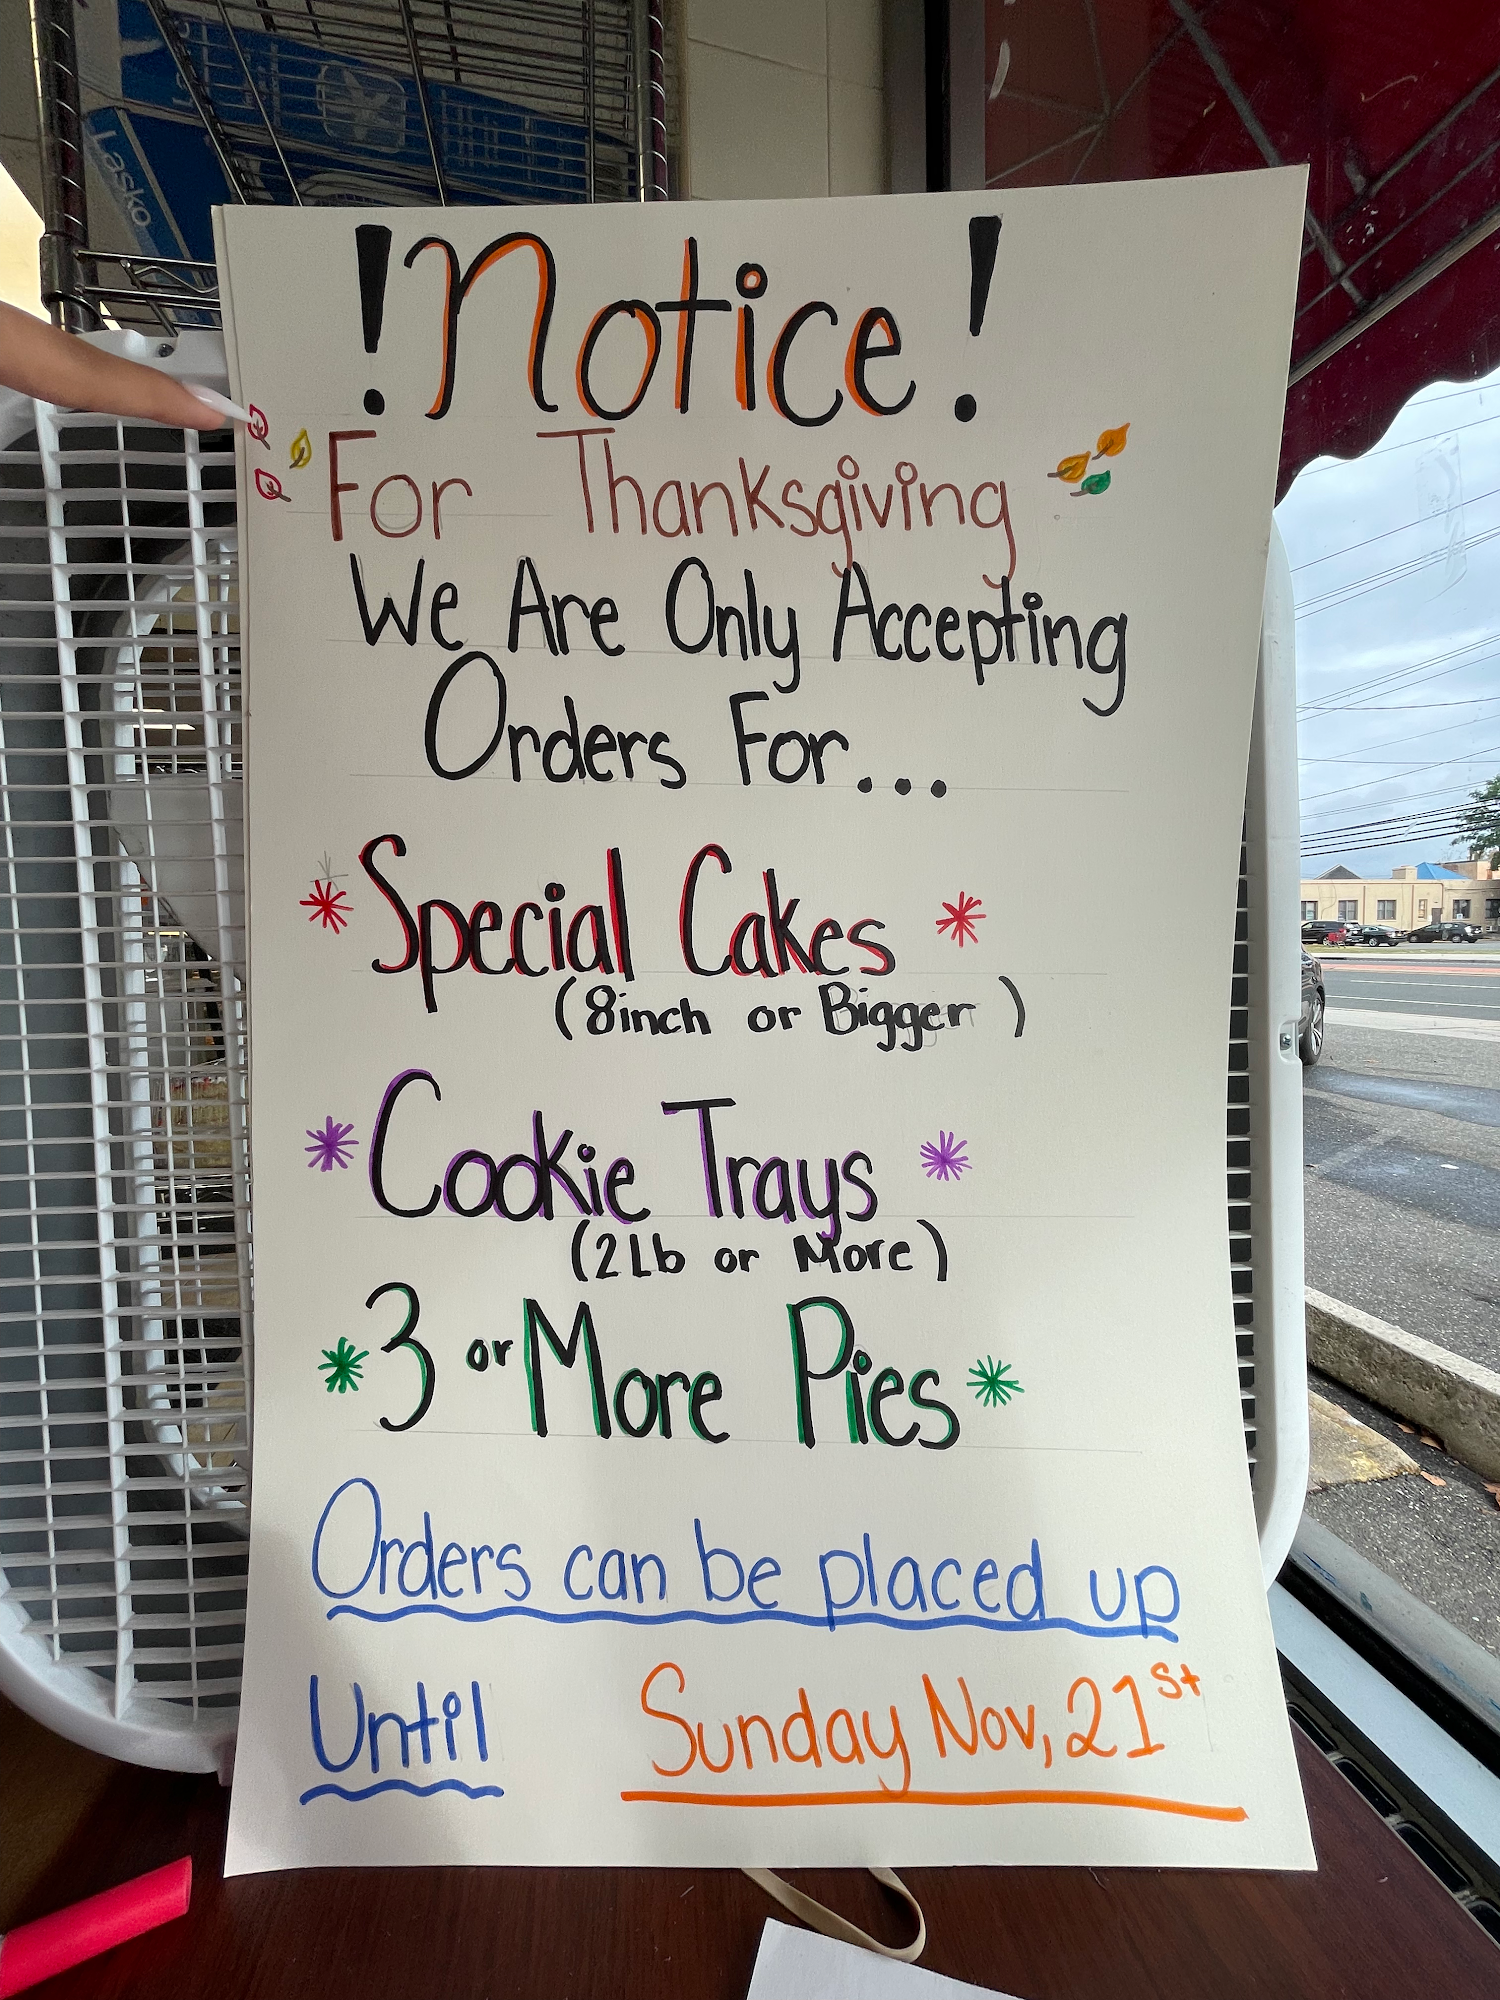 Lasko
!Notice!
For Thanksgiving
We Are Only Accepting
Orders For...
Special Cakes
(8inch or Bigger )
Cookie Trays
(2Lb or More)
3 or More Pies
Orders can be placed up
Until Sunday Nov, 21st